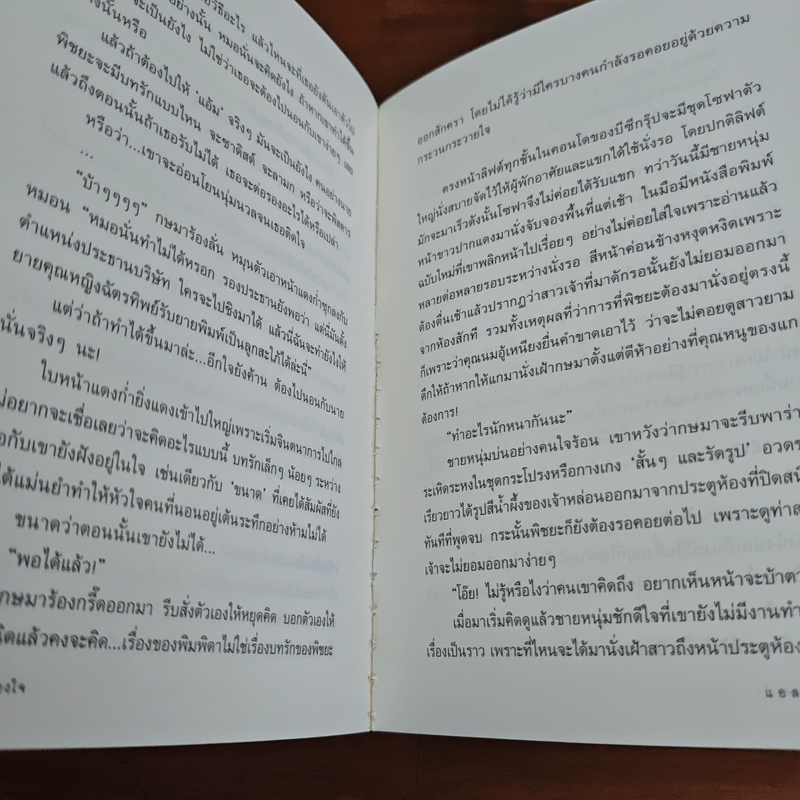 แล้วถ้าต้องไปให้ ‘แอ้ม’ จริงๆ มันจะเป็นยังไง คนอย่างนาย
พิชยะจะมีบทรักแบบไหน จะซาดิสต์ จะลามก หรือว่าจะพิสดาร
แล้วถึงตอนนั้นถ้าเธอรับไม่ได้ เธอจะต่อรองอะไรได้หรือเปล่า
หรือว่า...เขาจะอ่อนโยนนุ่มนวลจนเธอติดใจ
...
“บ้าๆๆๆๆ” กษมาร้องลั่น หมุนตัวเอาหน้าแดงก่ำซุกลงกับ
หมอน “หมอนั่นทำไม่ได้หรอก รองประธานยังพอว่า แต่นี่มันตั้ง
ตำแหน่งประธานบริษัท ใครจะไปชิงมาได้ แล้วนี่ฉันจะทำยังไงให้
ยายคุณหญิงฉัตรทิพย์รับยายพิมพ์เป็นลูกสะใภ้ได้ล่ะนี่”
แต่ว่าถ้าทำได้ขึ้นมาล่ะ...อีกใจยังค้าน ต้องไปนอนกับนาย
นั่นจริงๆ นะ!
ใบหน้าแดงก่ำยิ่งแดงเข้าไปใหญ่เพราะเริ่มจินตนาการไปไกล
อยากจะเชื่อเลยว่าจะคิดอะไรแบบนี้ บทรักเล็กๆ น้อยๆ ระหว่าง
กับเขายังฝังอยู่ในใจ เช่นเดียวกับ ‘ขนาด’ ที่เคยได้สัมผัสที่ยัง
ได้แม่นยำทำให้หัวใจคนที่นอนอยู่เต้นระทึกอย่างห้ามไม่ได้
ขนาดว่าตอนนั้นเขายังไม่ได้...
“พอได้แล้ว!”
กษมาร้องกรี๊ดออกมา รีบสั่งตัวเองให้หยุดคิด บอกตัวเองให้
คิดแล้วคงจะคิด...เรื่องของพิมพิดาไม่ใช่เรื่องบทรักของพิชยะ
ออกสักครา โดยไม่ได้รู้ว่ามีใครบางคนกำลังรอคอยอยู่ด้วยความ
กระวนกระวายใจ
ตรงหน้าลิฟต์ทุกชั้นในคอนโดของบีซีกรุ๊ปจะมีชุดโซฟาตัว
ใหญ่นั่งสบายจัดไว้ให้ผู้พักอาศัยและแขกได้ใช้นั่งรอ โดยปกติลิฟต์
มักจะมาเร็วดังนั้นโซฟาจึงไม่ค่อยได้รับแขก ทว่าวันนี้มีชายหนุ่ม
หน้าขาวปากแดงมานั่งจับจองพื้นที่แต่เช้า ในมือมีหนังสือพิมพ์
ฉบับใหม่ที่เขาพลิกหน้าไปเรื่อยๆ อย่างไม่ค่อยใส่ใจเพราะอ่านแล้ว
หลายต่อหลายรอบระหว่างนั่งรอ สีหน้าค่อนข้างหงุดหงิดเพราะ
ต้องตื่นเช้าแล้วปรากฏว่าสาวเจ้าที่มาดักรอนั้นยังไม่ยอมออกมา
จากห้องสักที รวมทั้งเหตุผลที่ว่าการที่พิชยะต้องมานั่งอยู่ตรงนี้
ก็เพราะว่าคุณนมอู้เหนียงยื่นคำขาดเอาไว้ ว่าจะไม่คอยดูสาวยาม
ดึกให้ถ้าหากให้แกมานั่งเฝ้ากษมาตั้งแต่ตีห้าอย่างที่คุณหนูของแก
ต้องการ!
“ทำอะไรนักหนากันนะ”
ชายหนุ่มบ่นอย่างคนใจร้อน เขาหวังว่ากษมาจะรีบพาร่าง
ระเหิดระหงในชุดกระโปรงหรือกางเกง ‘สั้นๆ และรัดรูป’ อวดข
เรียวยาวได้รูปสีน้ำผึ้งของเจ้าหล่อนออกมาจากประตูห้องที่ปิดสนิ
ทันทีที่พูดจบ กระนั้นพิชยะก็ยังต้องรอคอยต่อไป เพราะดูท่าส
เจ้าจะไม่ยอมออกมาง่ายๆ
“โอ๊ย! ไม่รู้หรือไงว่าคนเขาคิดถึง อยากเห็นหน้าจะบ้าตา
เมื่อมาเริ่มคิดดูแล้วชายหนุ่มชักดีใจที่เขายังไม่มีงานทำ
เรื่องเป็นราว เพราะที่ไหนจะได้มานั่งเฝ้าสาวถึงหน้าประตูห้อง